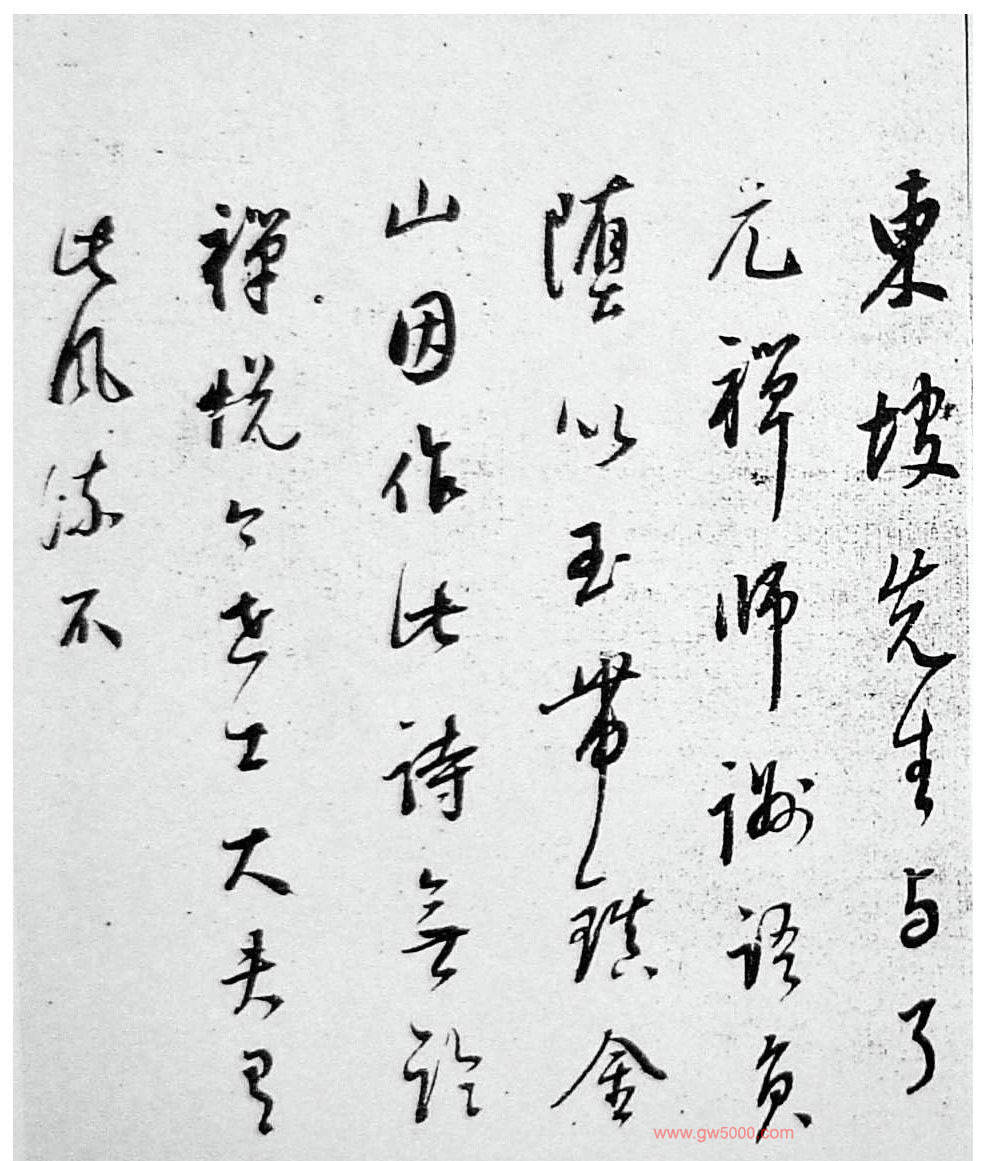 東坡先生与了
元禪師詶語負
堕以玉帶鎮金
山因作此詩無論
禪悦今世士大夫有
此风流不
www.gw5000.com